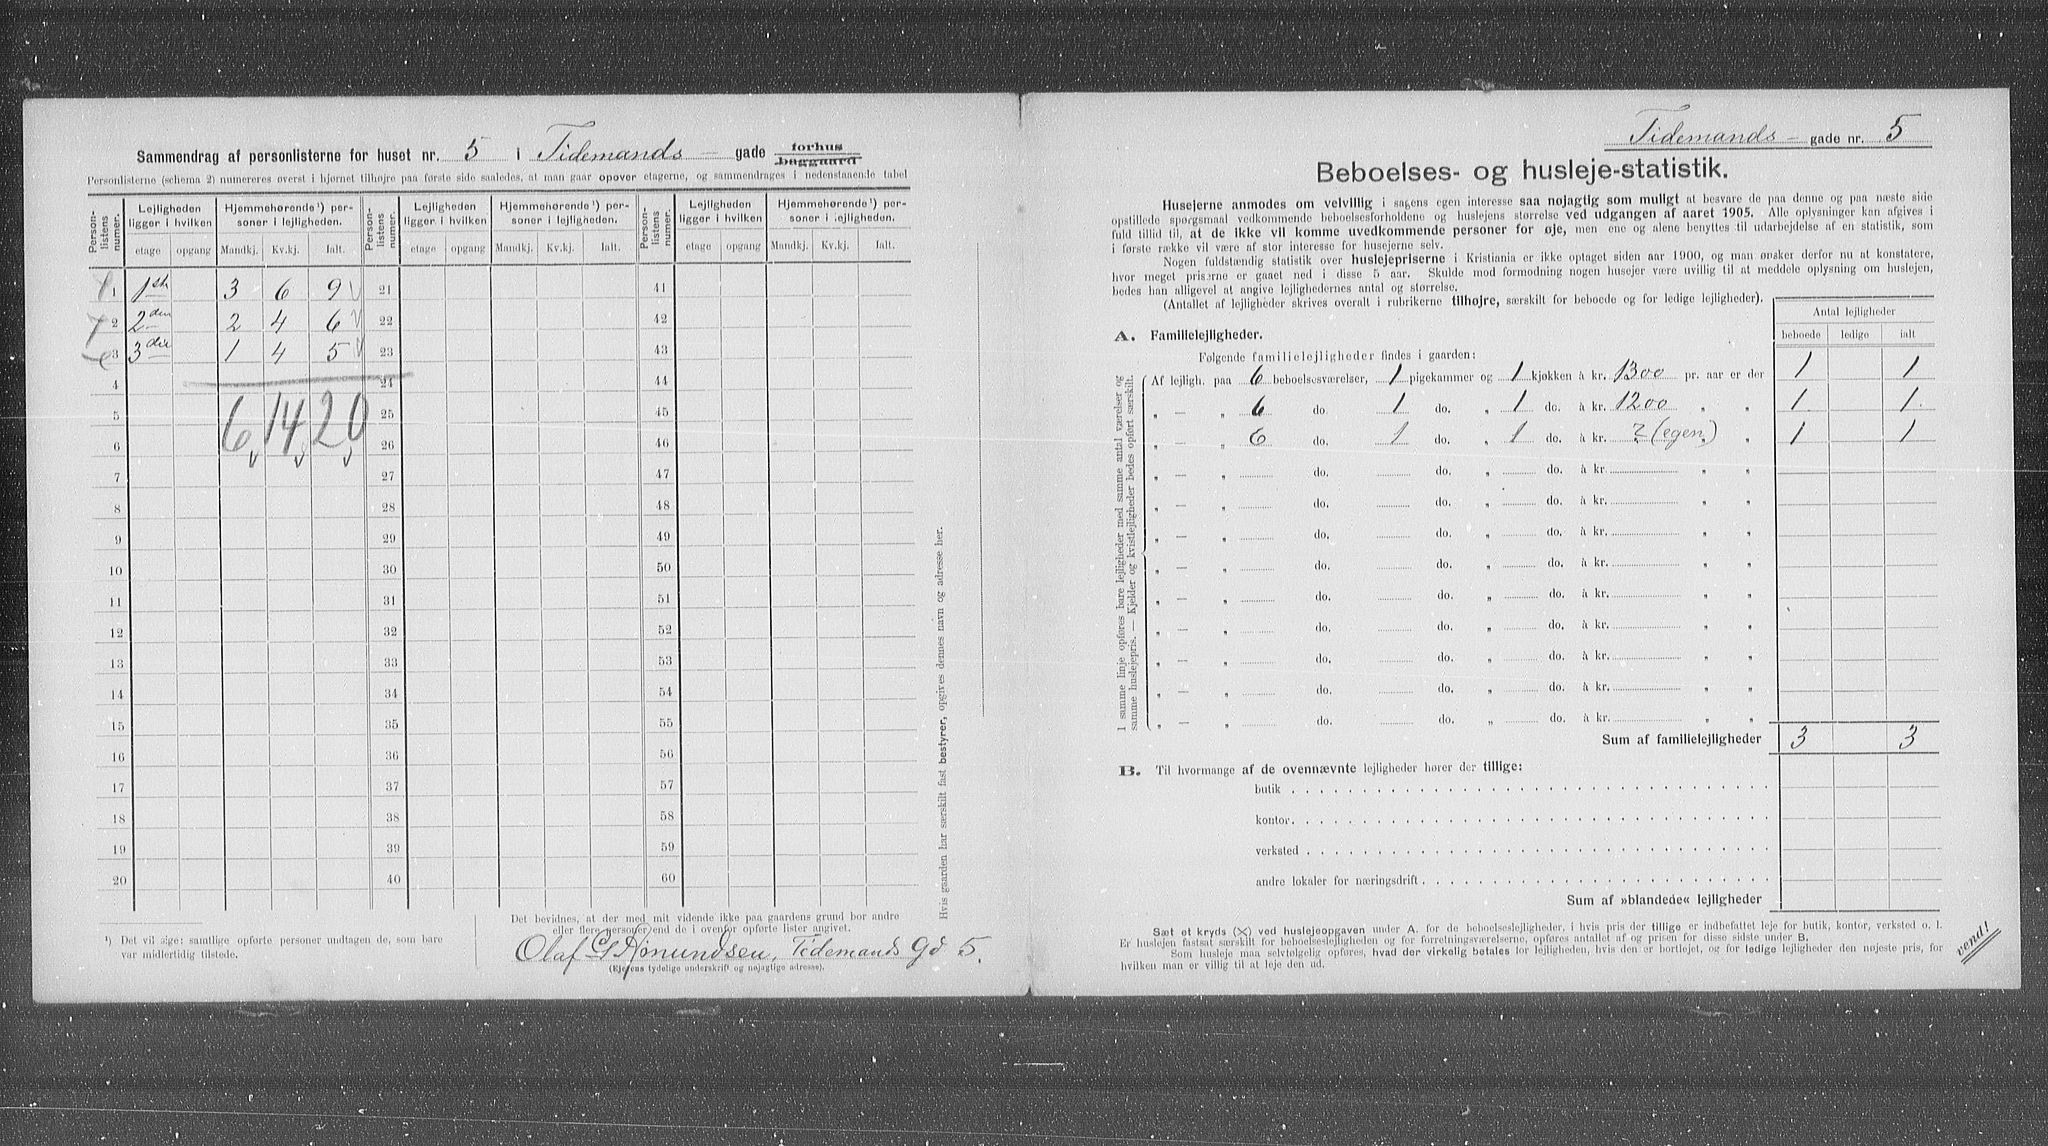 Sammendrag af personlisterne for huset nr. 5 i Tidemands - gade forhus baggaard
Personlisterne (schema 2) numereres øverst i hjørnet tilhøjre paa første side saaledes, at man gaar opover etagerne, og sammendrages i nedenstaaende tabel
Personlistens numer. Lejligheden ligger i hvilken Hjemmehørende¹) personer i lejligheden. Personlistens numer. Lejligheden ligger i hvilken Hjemmehørende¹) personer i lejligheden. Personlistens numer. Lejligheden ligger i hvilken Hjemmehørende¹) personer i lejligheden.
etage opgang Mandkj. Kv.kj. Ialt. etage opgang Mandkj. Kv.kj. Ialt. etage opgang Mandkj. Kv.kj. Ialt.
1 1ste 3 6 9 21 41
2 2den 2 4 6 22 42
3 3die 1 4 5 23 43
4 24 44
5 6 14 20 25 45
6 26 46
7 27 47
8 28 48
9 29 49
10 30 50
11 31 51
12 32 52
13 33 53
14 34 54
15 35 55
16 36 56
17 37 57
18 38 58
19 39 59
20 40 60
¹) Det vil sige: samtlige opførte personer undtagen de, som bare
var midlertidig tilstede.
Det bevidnes, at der med mit vidende ikke paa gaardens grund bor andre
eller flere personer end de i ovenfor opførte lister angivet.
Olaf Tidemands Gd 5.
(Ejerens tydelige underskrift og nøjagtige adresse).
Hvis gaarden har særskilt fast bestyrer, opgives dennes navn og adresse her.
Tidemands - gade nr. 5
Beboelses- og husleje-statistik.
Husejerne anmodes om velvillig i sagens egen interesse saa nøjagtig som muligt at besvare de paa denne og paa næste side
opstillede spørgsmaal vedkommende beboelsesforholdene og huslejens størrelse ved udgangen af aaret 1905. Alle oplysninger kan afgives i
fuld tillid til, at de ikke vil komme uvedkommende personer for øje, men ene og alene benyttes til udarbejdelse af en statistik, som
i første række vil være af stor interesse for husejerne selv.
Nogen fuldstændig statistik over huslejepriserne i Kristiania er ikke optaget siden aar 1900, og man ønsker derfor nu at konstatere,
hvor meget priserne er gaaet ned i disse 5 aar. Skulde mod formodning nogen husejer være uvillig til at meddele oplysning om huslejen,
bedes han alligevel at angive lejlighedernes antal og størrelse.
(Antallet af lejligheder skrives overalt i rubrikerne tilhøjre, særskilt for beboede og for ledige lejligheder).
Antal lejligheder
beboede ledige ialt
A. Familielejligheder.
Følgende familielejligheder findes i gaarden:
I samme linje opføres bare lejligheder med samme antal værelser og
samme huslejepris. — Kjelder og kvistlejligheder bedes opført særskilt.
Af lejligh. paa 6 beboelsesværelser, 1 pigekammer og 1 kjøkken à kr. 1300 pr. aar er der 1 1
„ — „ 6 do. 1 do. „ 1 do. à kr. 1200 „ „ 1 1
„ — „ 6 do. 1 do. „ 1 do. à kr. ? (egen) „ „ 1 1
„ — „ do. do. „ do. à kr. „ „
„ — „ do. do. „ do. à kr. „ „
„ — „ do. do. „ do. à kr. „ „
„ — „ do. do. „ do. à kr. „ „
„ — „ do. do. „ do. à kr. „ „
„ — „ do. do. „ do. à kr. „ „
„ — „ do. do. „ do. à kr. „ „
„ — „ do. do. „ do. à kr. „ „
„ — „ do. do. „ do. à kr. „ „
Sum af familielejligheder 3 3
B. Til hvormange af de ovennævnte lejligheder hører der tillige:
butik
kontor
verksted
andre lokaler for næringsdrift
Sum af »blandede« lejligheder
Sæt et kryds (×) ved huslejeopgaven under A. for de beboelseslejligheder, i hvis pris der tillige er indbefattet leje for butik, kontor, verksted o. l.
Er huslejen fastsat særskilt for beboelseslejligheden og for forretningsværelserne, opføres antallet af og prisen for disse sidste under B.
Som husleje maa selvfølgelig opføres, hvad der virkelig betales for lejligheden, hvis den er bortlejet, og for ledige lejligheder den nøjeste pris, for
hvilken man er villig til at leje den ud.
vend!